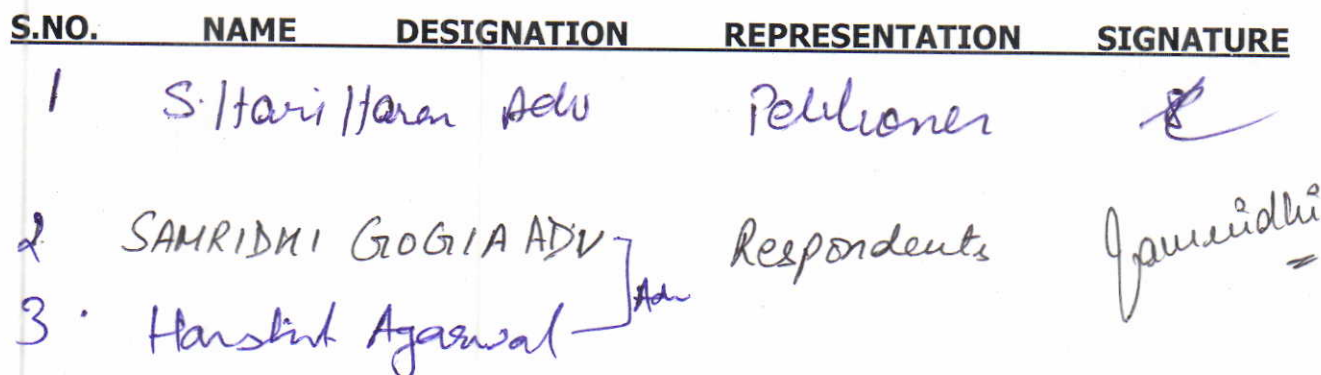 S.NO. NAME DESIGNATION REPRESENTATION SIGNATURE
1 S. Hari Haran Adv Petitioner
2 SAMRIDHI GOGIA ADV Respondents Samridhi
Adv
3. Agarwal